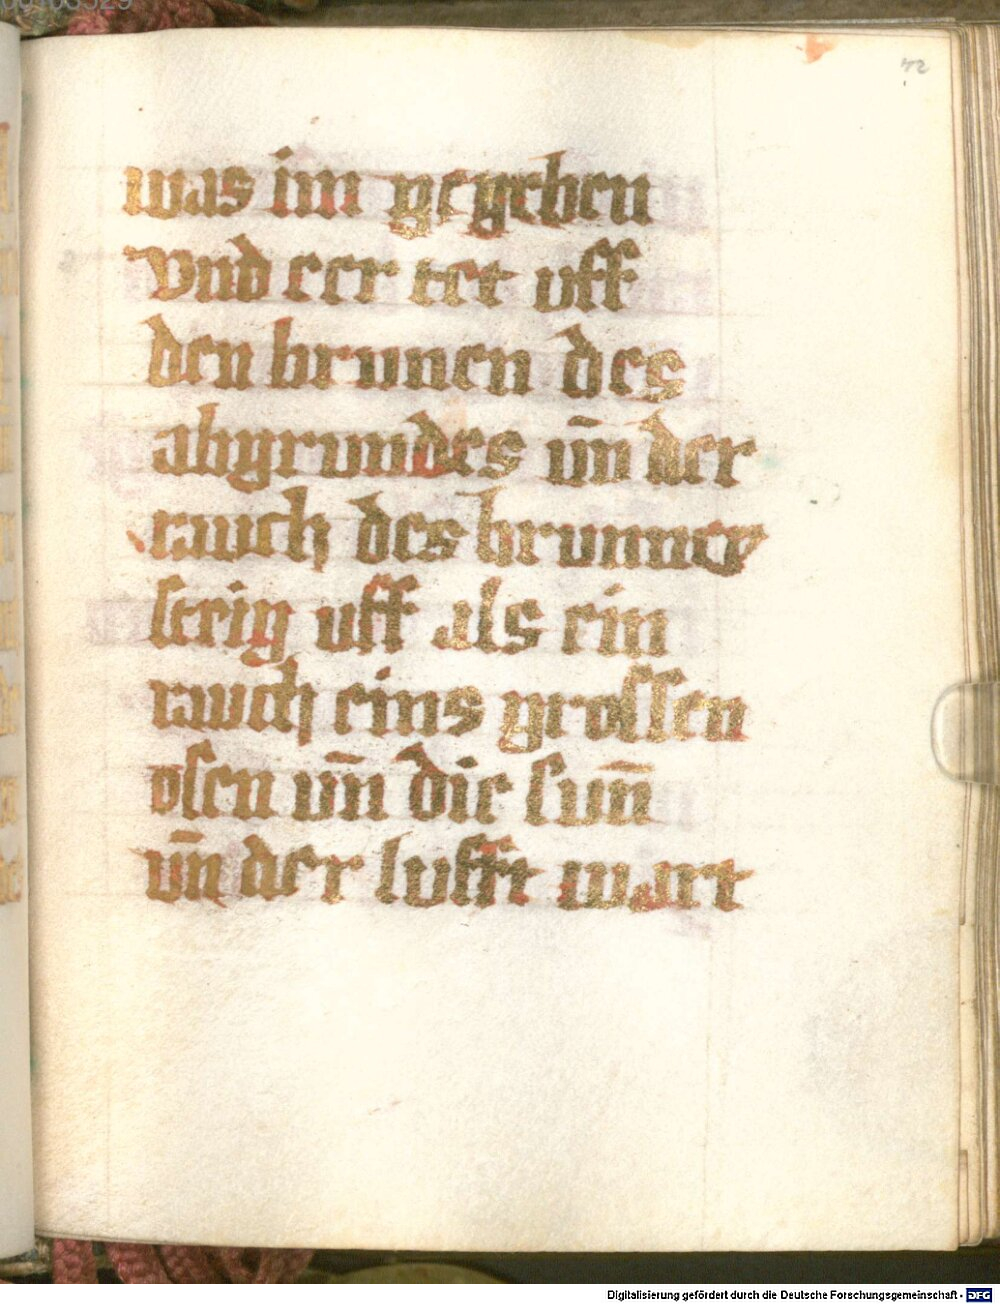 00103529
72
was im gegeben
vnd eer tet uff
den brunen des
abgrundes vn̄ der
rauch des brunnes
steig uff als ein
rauch eins grossen
ofen vn̄ die sunn̄
vn̄ der lufft wart
Digitalisierung gefördert durch die Deutsche Forschungsgemeinschaft - DFG